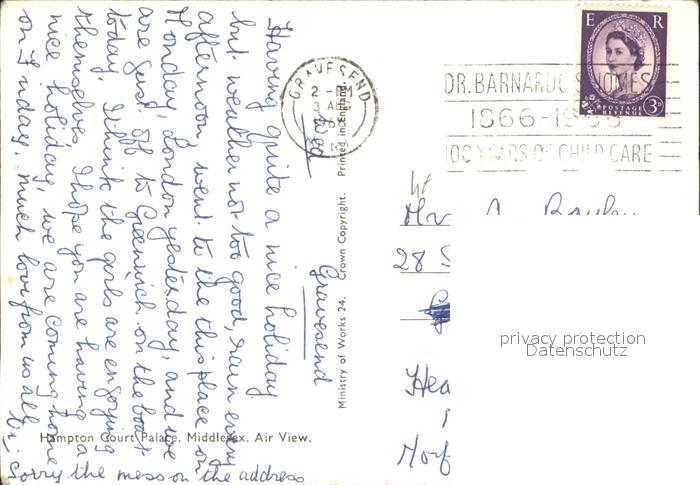 E R
POSTAGE
REVENUE
3D
GRAVESEND
2 - PM
3 AUG
DR. BARNARDO'S HOMES
1866-1966
100 YEARS OF CHILD CARE
Wed
Gravesend
Having quite a nice holiday
but weather not too good, rain every
afternoon went to the this place on
Monday, London yesterday, and we
are just off to Greenwich on the boat
today. I think the girls are enjoying
themselves, I hope you are having a
nice holiday, we are coming home
on Friday. Much love from us all
Vi.
Sorry the mess on the address
Hampton Court Palace, Middlesex. Air View.
Ministry of Works 24. Crown Copyright. Printed in England
28 S
Hea
Norf
privacy protection
Datenschutz